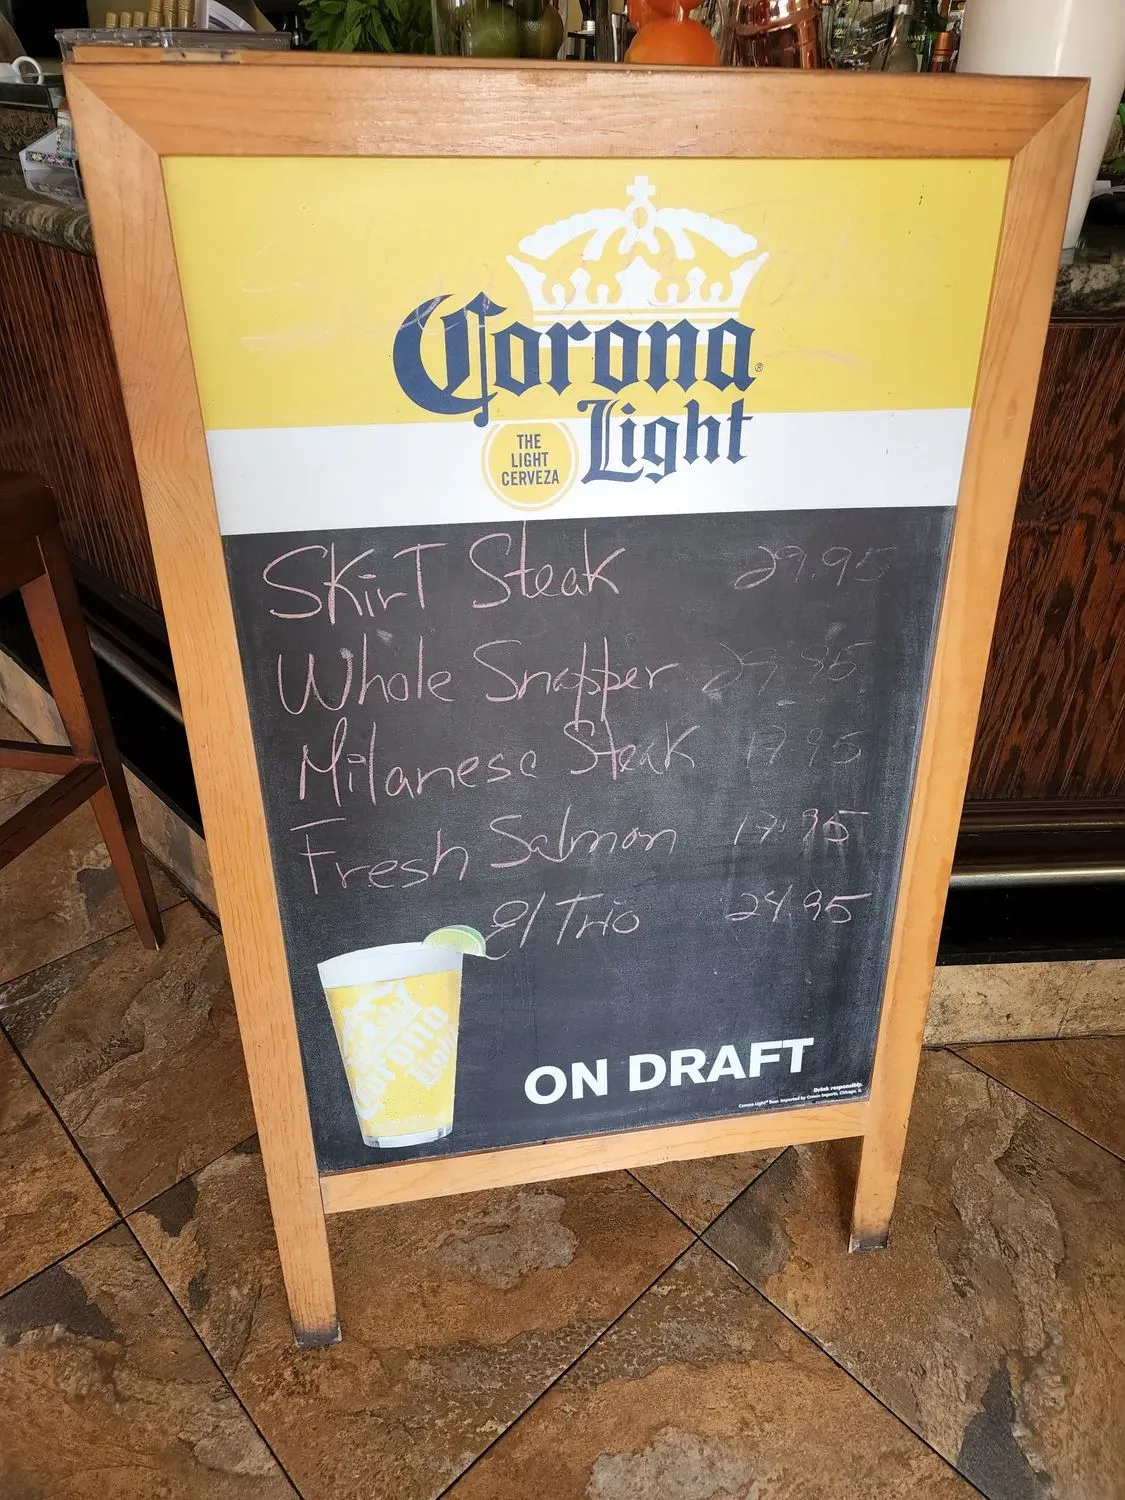 Corona
Light
THE
LIGHT
CERVEZA
Skirt Steak 29.95
Whole Snapper 29.95
Milanese Steak 17.95
Fresh Salmon 17.95
El Trio 24.95
Corona
Light
ON DRAFT
Drink responsibly.
Corona Light® Beer. Imported by Crown Imports, Chicago, IL